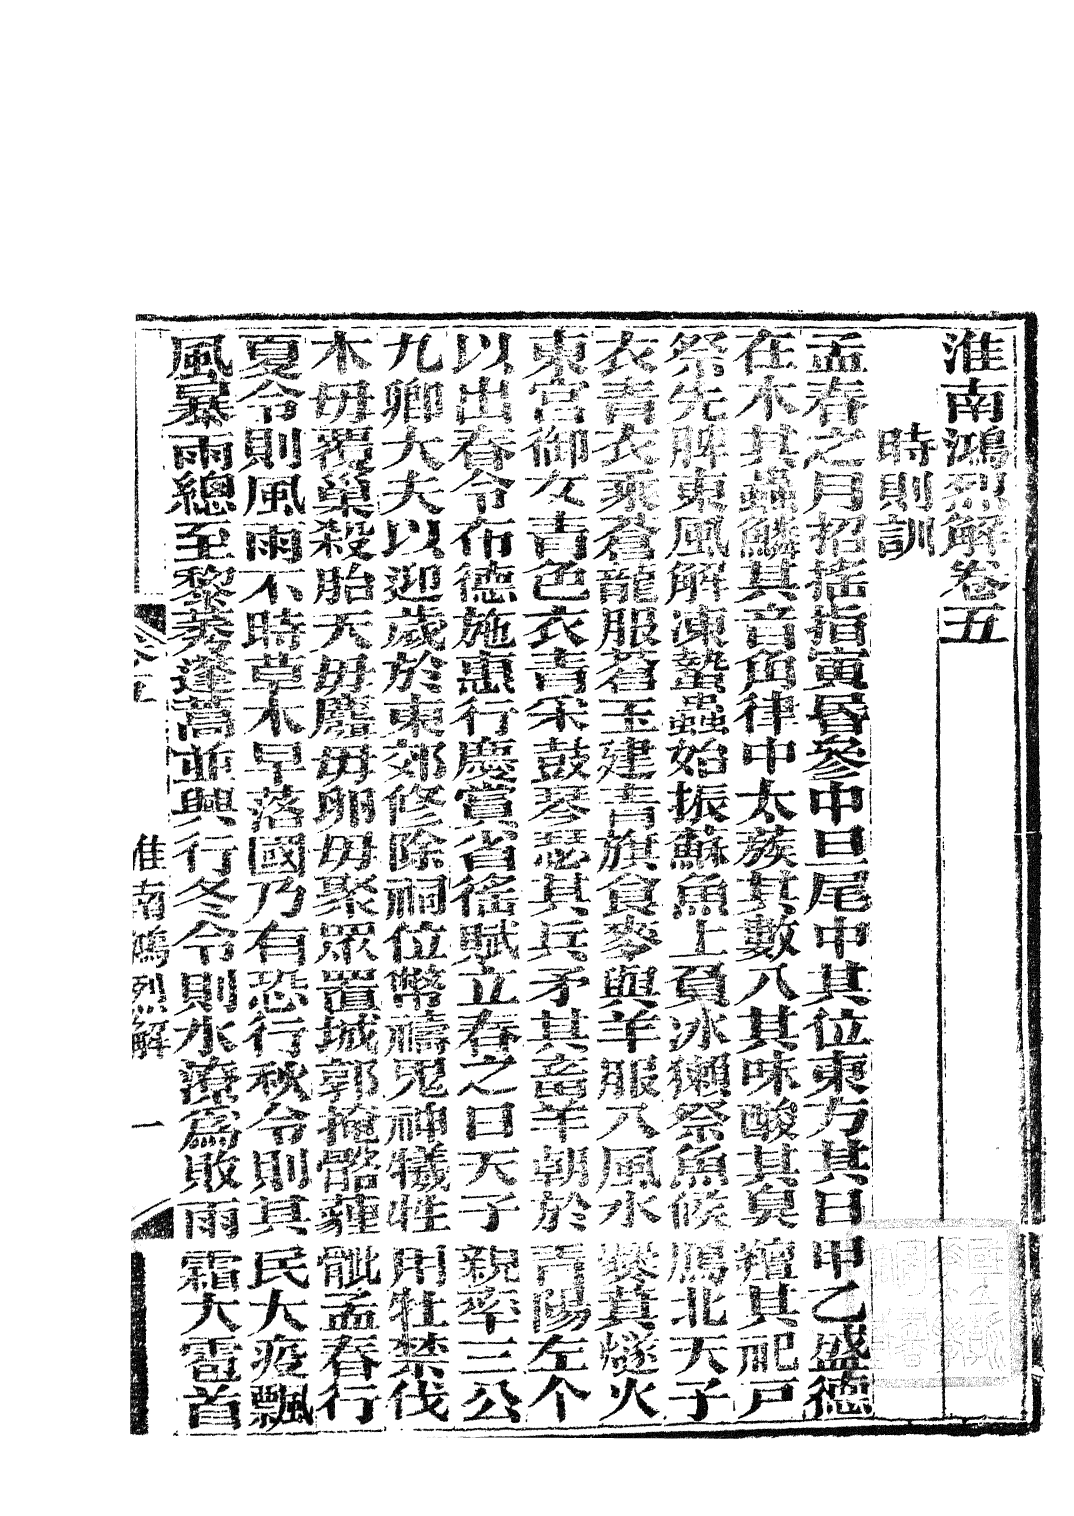 淮南鴻烈解卷五
時則訓
孟春之月招搖指寅昏參中旦尾中其位東方其日甲乙盛德
在木其蟲鱗其音角律中太蔟其數八其味酸其臭羶其祀戸
祭先脾東風解凍蟄蟲始振蘇魚上負冰獺祭魚候鴈北天子
衣青衣乘蒼龍服蒼玉建青旗食麥與羊服八風水爨萁燧火
東宮御女青色衣青采鼓琴瑟其兵矛其畜羊朝於青陽左个
以出春令布德施惠行慶賞省徭賦立春之日天子親率三公
九卿大夫以迎歲於東郊修除祠位幣禱鬼神犧牲用牡禁伐
木毋覆巢殺胎夭毋麛毋卵毋聚眾置城郭掩骼薶骴孟春行
夏令則風雨不時草木早落國乃有恐行秋令則其民大疫飄
風暴雨總至黎莠蓬蒿並興行冬令則水潦為敗雨霜大雹首
卷五
淮南鴻烈解
一